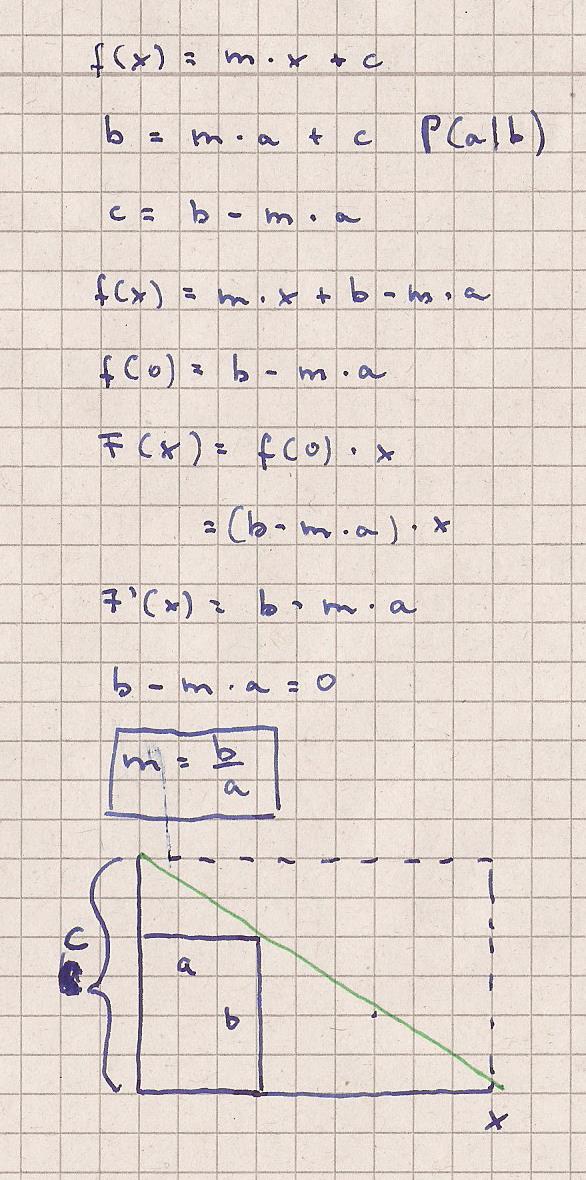 f(x) = m · x + c
b = m · a + c P(a|b)
c = b - m · a
f(x) = m · x + b - m · a
f(0) = b - m · a
F(x) = f(0) · x
= (b - m · a) · x
F'(x) = b - m · a
b - m · a = 0
m = b/a
c
a
b
x